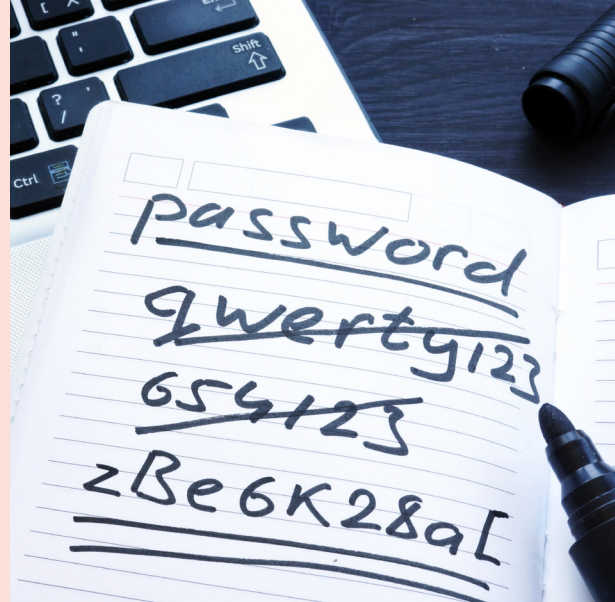 Shift
Ctrl
password
qwerty123
654123
zBe6K28a[